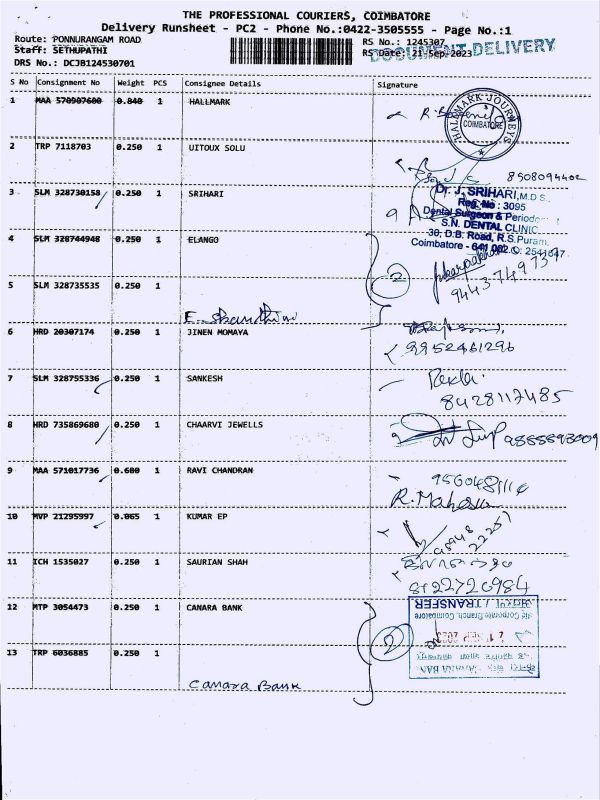 THE PROFESSIONAL COURIERS, COIMBATORE
Delivery Runsheet - PC2 - Phone No.:0422-3505555 - Page No.:1
Route: PONNURANGAM ROAD
RS No.: 1245307
Staff: SETHUPATHI
RS Date: 21-Sep-2023
DOCUMENT DELIVERY
DRS No.: DCJB124530701
S No Consignment No Weight PCS Consignee Details Signature
1 MAA 570907600 0.840 1 HALLMARK
HALLMARK JOURNEYS
COIMBATORE
2 TRP 7118703 0.250 1 UITOUX SOLU
8508094402
3 SLM 328730158 0.250 1 SRIHARI
Dr. J. SRIHARI, M.D.S.,
Reg. No : 3095
Dental Surgeon & Periodon
S.N. DENTAL CLINIC
30, D.B. Road, R.S.Puram,
Coimbatore - 641 002
4 SLM 328744948 0.250 1 ELANGO
2
5 SLM 328735535 0.250 1
6 HRD 20307174 0.250 1 JINEN MOMAYA
9952461296
7 SLM 328755336 0.250 1 SANKESH
Rekha
8428117485
8 HRD 735869680 0.250 1 CHAARVI JEWELLS
9 MAA 571017736 0.600 1 RAVI CHANDRAN
10 MVP 21295997 0.065 1 KUMAR EP
11 ICH 1535027 0.250 1 SAURIAN SHAH
8122720984
12 MTP 3054473 0.250 1 CANARA BANK
TRANSFER
Corporate Branch, Coimbatore
2
13 TRP 6036885 0.250 1
Canara Bank